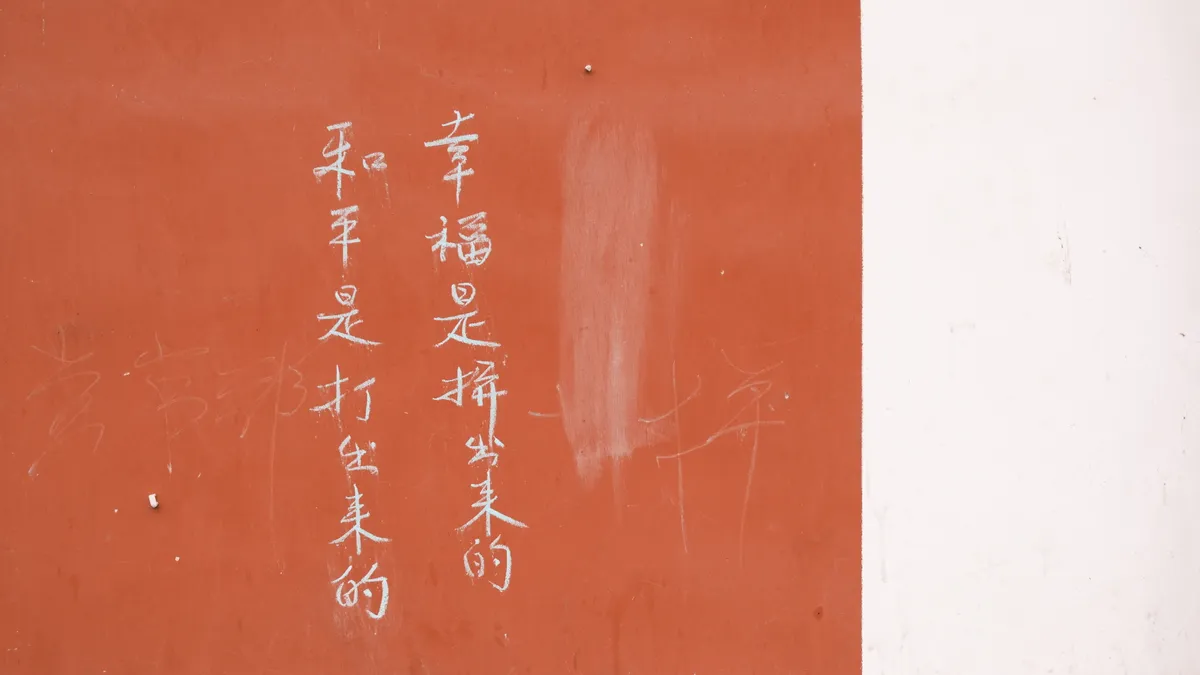 幸福是拼出来的
和平是打出来的